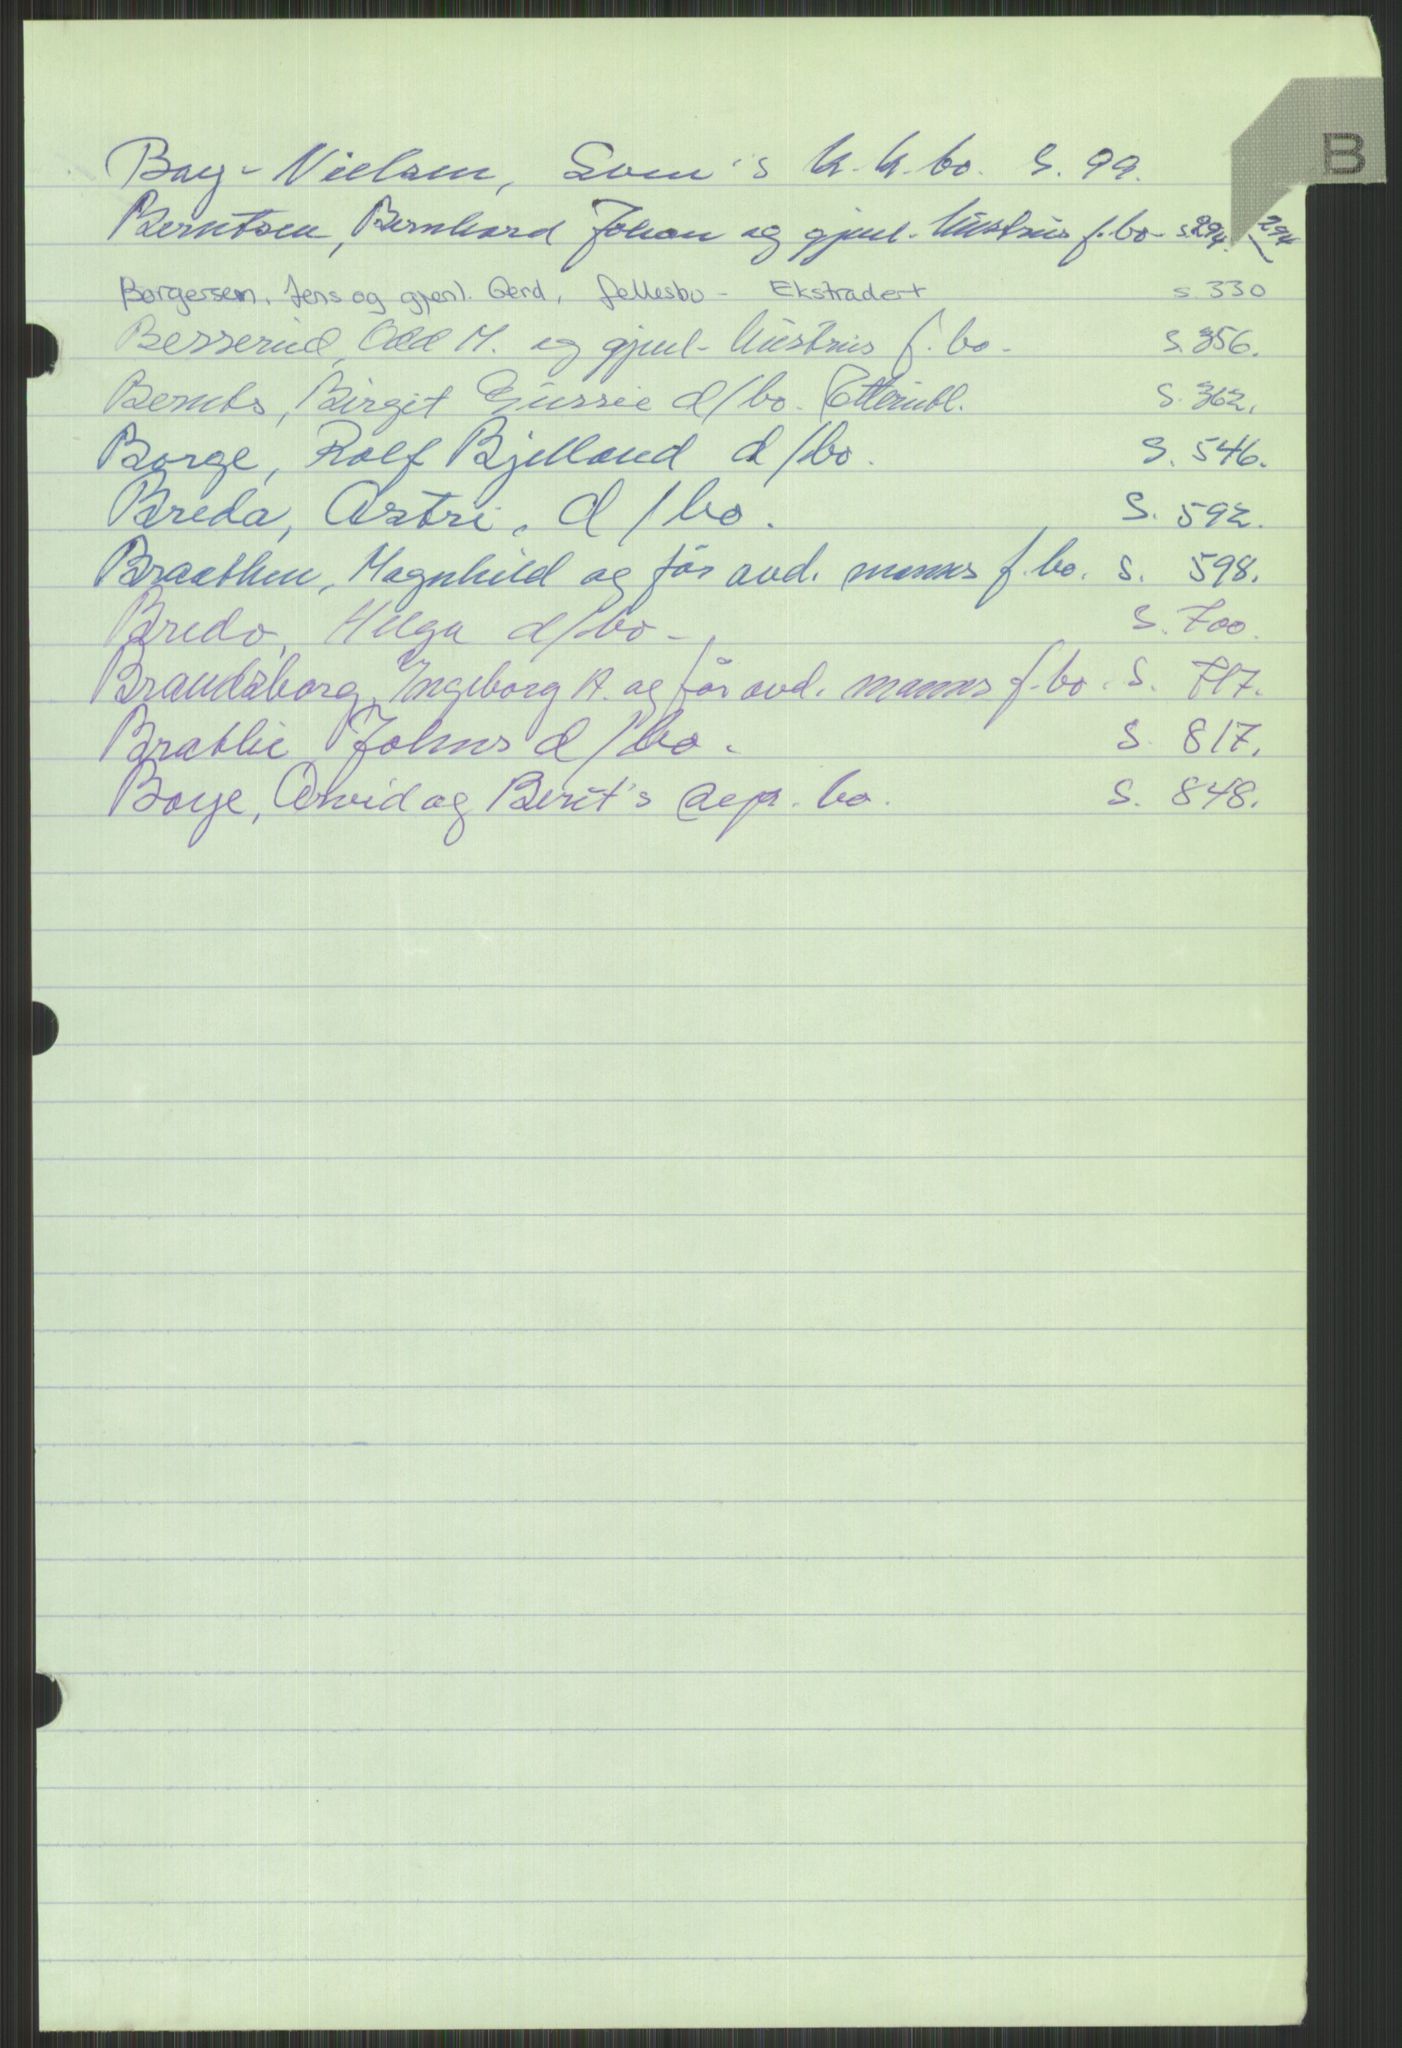 B
Bay-Nielsen, Sven's k.k. bo. S. 99.
Berntsen, Bernhard Johan og gjenl. hustrus f.bo - s. 294. 294
Borgersen, Jens og gjenl. Gerd, fellesbo - Ekstradert s. 330
Besserud, Odd M. og gjenl. hustrus f. bo - S. 356.
Bernts, Birgit Gussie d/bo. Etterutl. S. 362.
Borge, Rolf Bjelland d/bo. S. 546.
Breda, Astri, d/bo. S. 592.
Braathen, Magnhild og før avd. manns f. bo. S. 598.
Bredo, Helga d/bo - S. 700.
Brandsborg, Ingeborg A. og før avd. manns f. bo. S. 717.
Bratlie Johns d/bo. S. 817.
Boye, Arvid og Berit's sep. bo. S. 848.